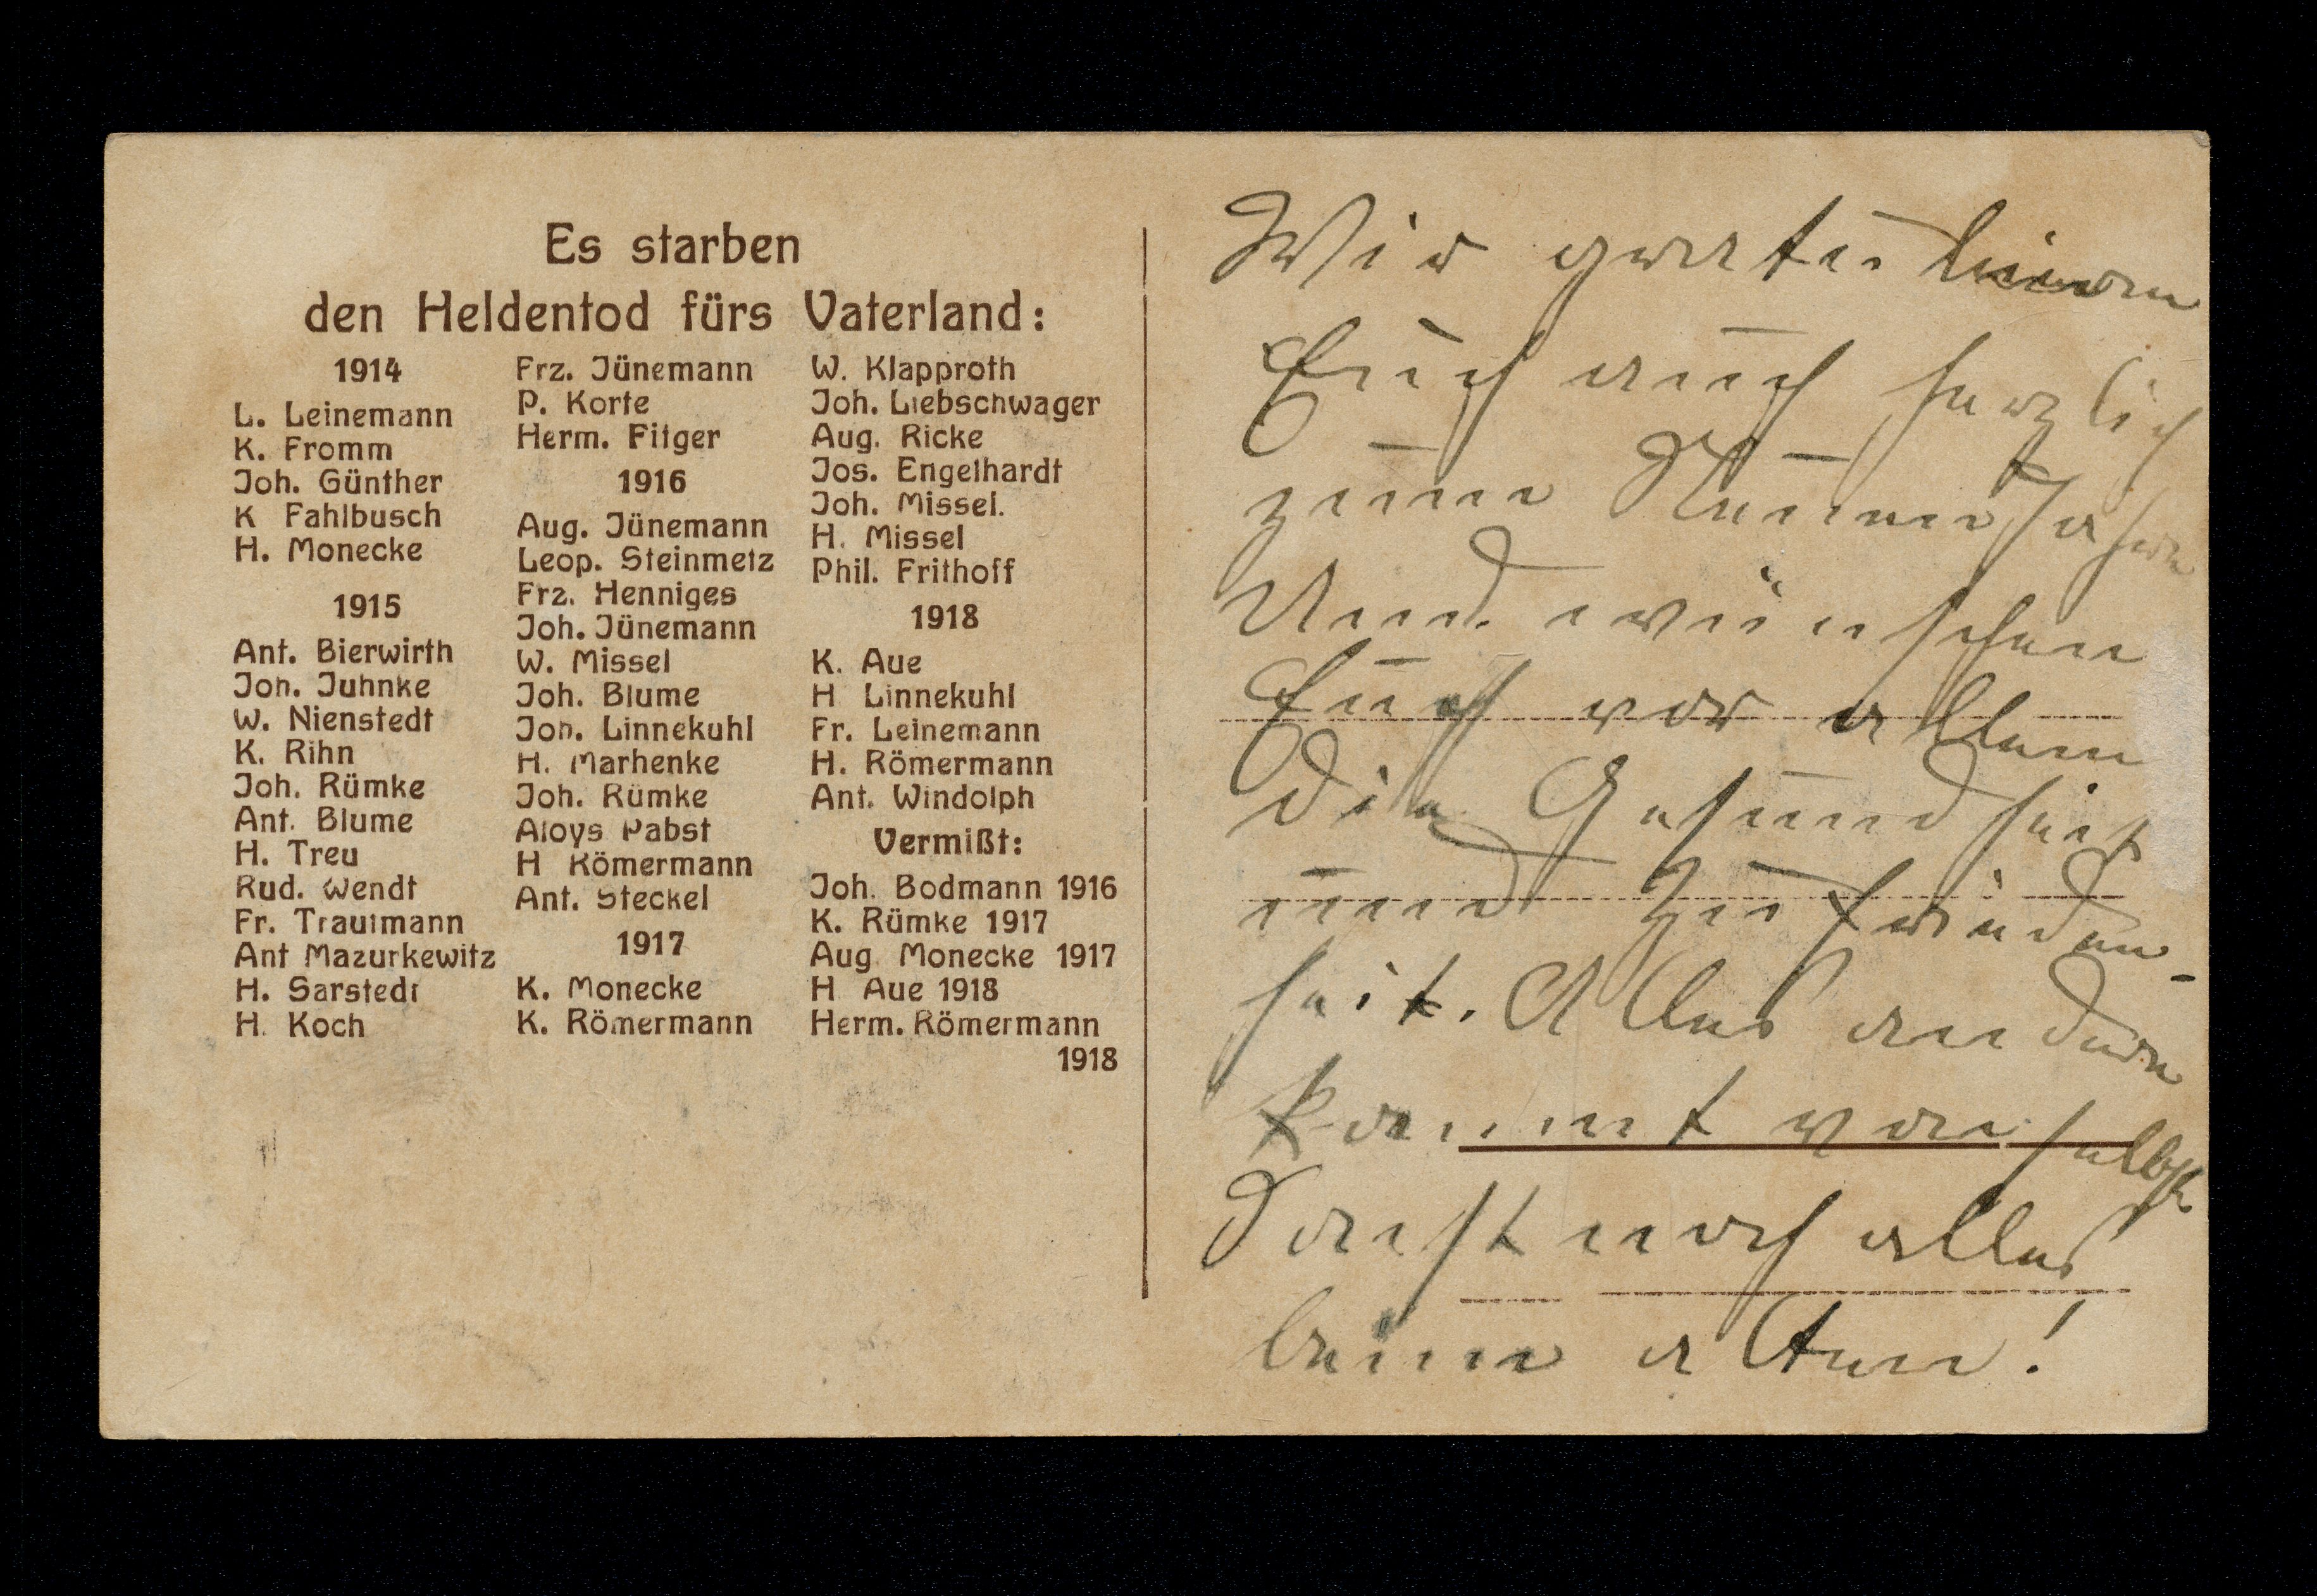 Es starben
den Heldentod fürs Vaterland:
1914
L. Leinemann
K. Fromm
Joh. Günther
K Fahlbusch
H. Monecke
1915
Ant. Bierwirth
Joh. Juhnke
W. Nienstedt
K. Rihn
Joh. Rümke
Ant. Blume
H. Treu
Rud. Wendt
Fr. Trautmann
Ant Mazurkewitz
H. Sarstedt
H. Koch
Frz. Jünemann
P. Korte
Herm. Fitger
1916
Aug. Jünemann
Leop. Steinmetz
Frz. Henniges
Joh. Jünemann
W. Missel
Joh. Blume
Joh. Linnekuhl
H. Marhenke
Joh. Rümke
Aloys Pabst
H Römermann
Ant. Steckel
1917
K. Monecke
K. Römermann
W. Klapproth
Joh. Liebschwager
Aug. Ricke
Jos. Engelhardt
Joh. Missel.
H. Missel
Phil. Frithoff
1918
K. Aue
H Linnekuhl
Fr. Leinemann
H. Römermann
Ant. Windolph
Vermißt:
Joh. Bodmann 1916
K. Rümke 1917
Aug. Monecke 1917
H Aue 1918
Herm. Römermann
1918
Wir gratulieren
Euch auch herzlich
zum Neuen Jahre
Und wünschen
Euch vor allem
die Gesundheit
und Zufrieden-
heit. Alles andere
kommt von selbst.
Sonst noch alles
beim alten!